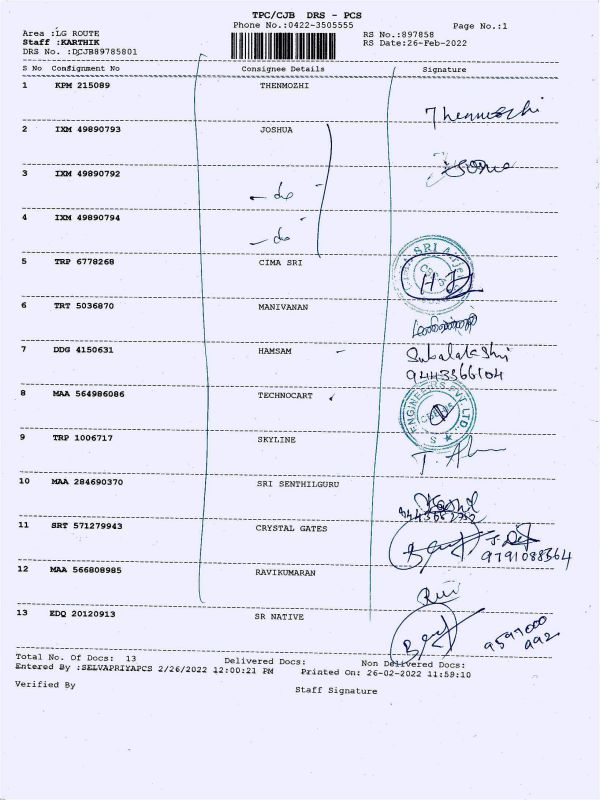 TPC/CJB DRS - PCS
Phone No.:0422-3505555
Page No.:1
Area :LG ROUTE
RS No.:897858
Staff :KARTHIK
RS Date:26-Feb-2022
DRS No. :DCJB89785801
S No Consignment No Consignee Details Signature
1 KPM 215089 THENMOZHI
Thenmozhi
2 IXM 49890793 JOSHUA
3 IXM 49890792
- do
4 IXM 49890794
- do
5 TRP 6778268 CIMA SRI
6 TRT 5036870 MANIVANAN
7 DDG 4150631 HAMSAM -
Subalakshmi
9443366104
8 MAA 564986086 TECHNOCART
ENGINEERS PVT. LTD.
9 TRP 1006717 SKYLINE
10 MAA 284690370 SRI SENTHILGURU
11 SRT 571279943 CRYSTAL GATES
9791088364
12 MAA 566808985 RAVIKUMARAN
13 EDQ 20120913 SR NATIVE
Total No. Of Docs: 13 Delivered Docs: Non Delivered Docs:
Entered By :SELVAPRIYAPCS 2/26/2022 12:00:21 PM Printed On: 26-02-2022 11:59:10
Verified By Staff Signature